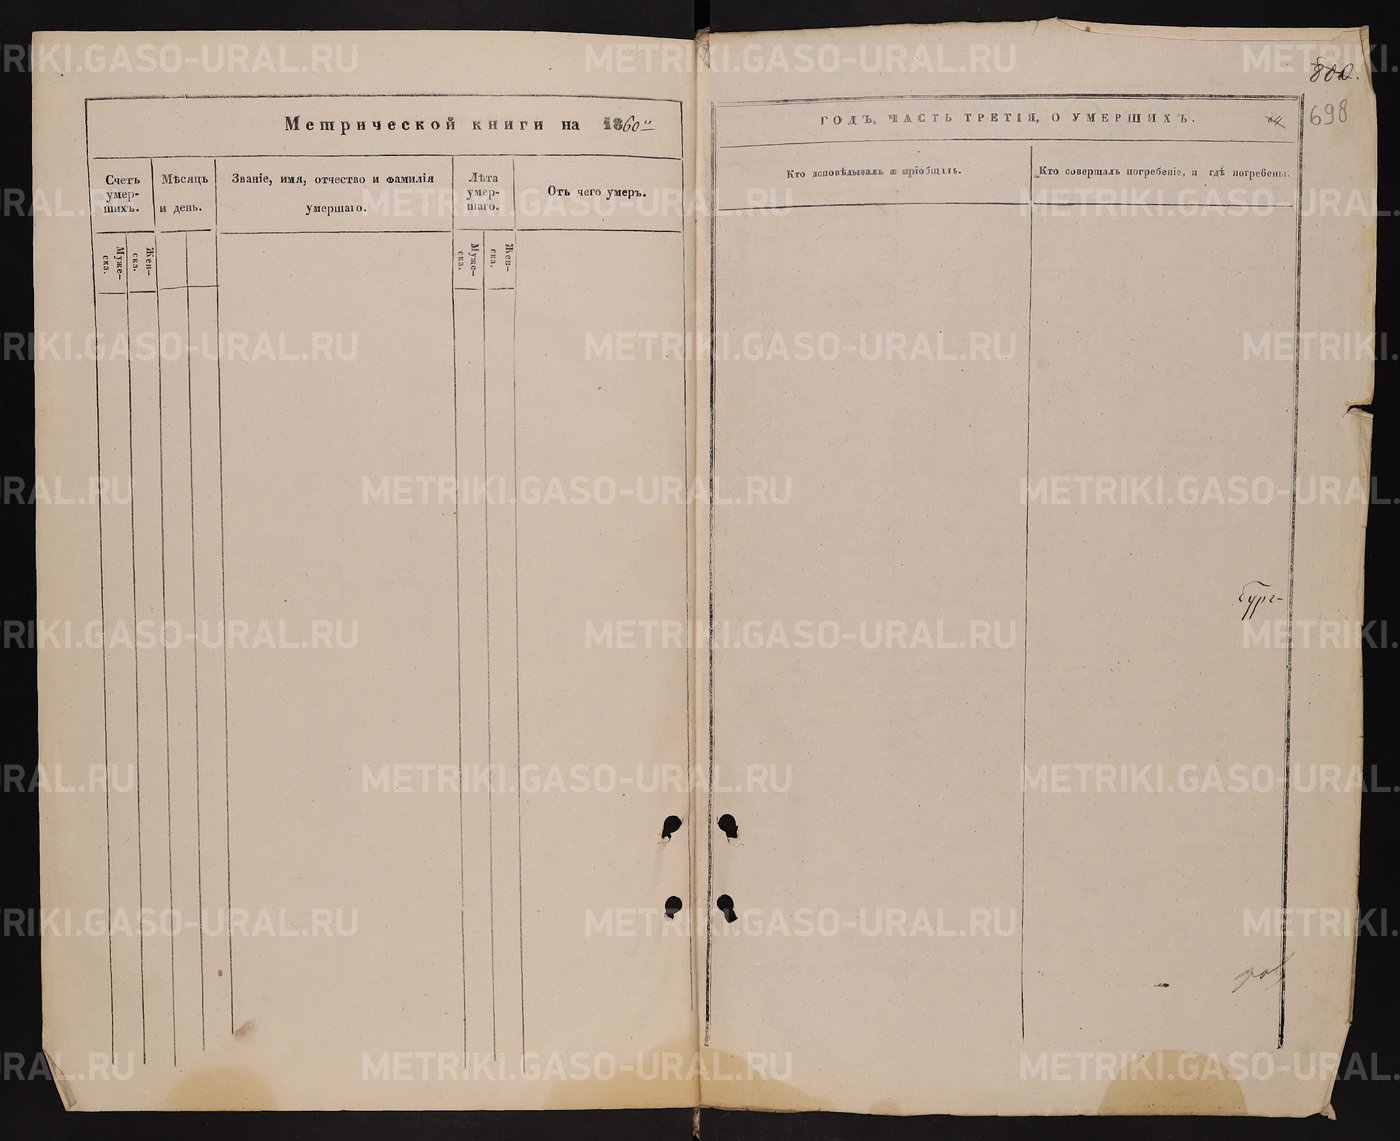 Метрической книги на 1860й
Счетъ умер- шихъ.
Мѣсяцъ и день.
Званіе, имя, отчество и фамилія умершаго.
Лѣта умер- шаго.
Отъ чего умеръ.
Муже- ска.
Жен- ска.
Муже- ска.
Жен- ска.
800.
698
ГОДЪ, ЧАСТЬ ТРЕТІЯ, О УМЕРШИХЪ.
Кто исповѣдывалъ и пріобщалъ.
Кто совершалъ погребеніе, и гдѣ погребены.
METRIKI.GASO-URAL.RU